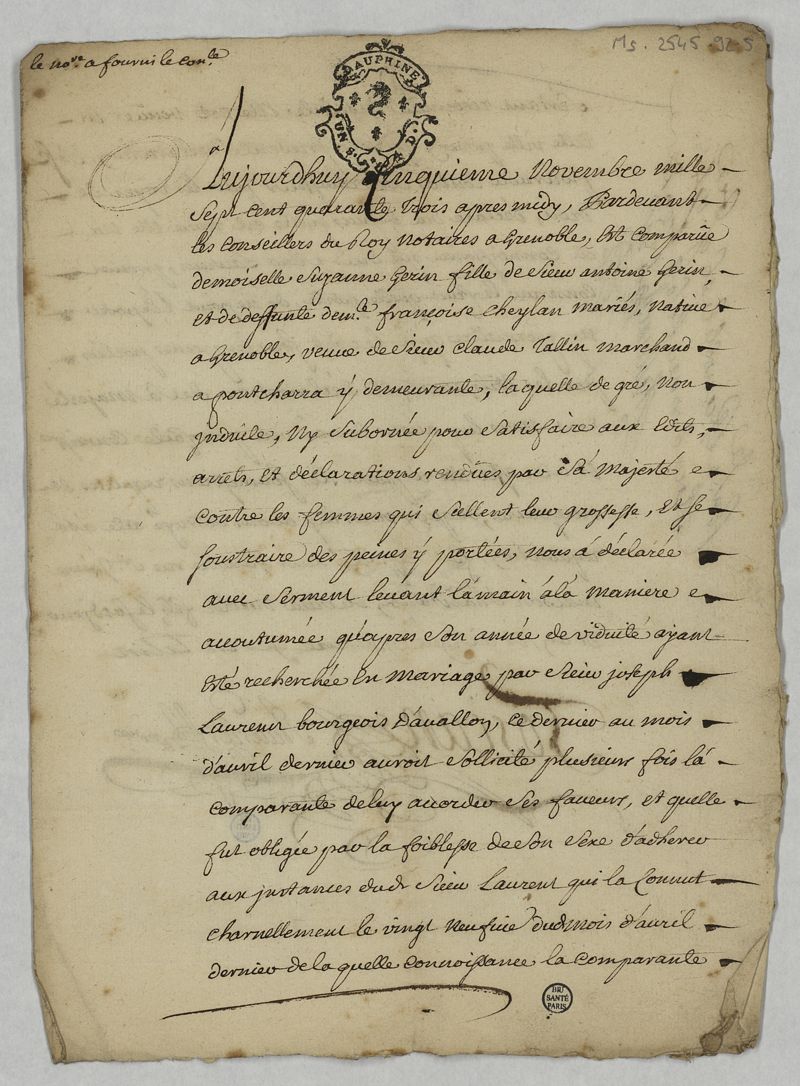 Ms. 2545 92.5
le no.re a fourni le con.le
DAUPHINE
UN S. D.
Aujourdhuy cinquieme novembre mille
Sept cent quarante trois apres midy, Pardevant
les Conseillers du Roy notaires a Grenoble, Est comparüe
demoiselle Suzanne Gerin fille de Sieur antoine Gerin,
et de deffunte dem.le françoise Cheylan mariés, native
a Grenoble, veuve de Sieur Claude Tallin marchand
a pontcharra y demeurante, laquelle de gré, non
jnduite, ny Subornée pour Satisfaire aux Edits,
arrets, et déclarations rendües par Sa majesté
contre les femmes qui Scellent leur grossesse, et se
soustraire des peines y portées, nous á déclarée
avec Serment levant la main á la maniere
accoutumée qu'apres Son année de viduité ayant
été recherchée en mariage par Sieur joseph
Laurent bourgeois d'avallon, ce dernier au mois
d'avril dernier auroit Sollicité plusieurs fois la
comparante de luy accorder Ses faveurs, et quelle
fut obligée par la foiblesse de Son Sexe d'adherer
aux jnstances dud. Sieur Laurent qui la connut
charnellement le vingt neufvie. dud. mois d'avril
dernier de laquelle connoissance la comparante
BIU
SANTÉ
PARIS